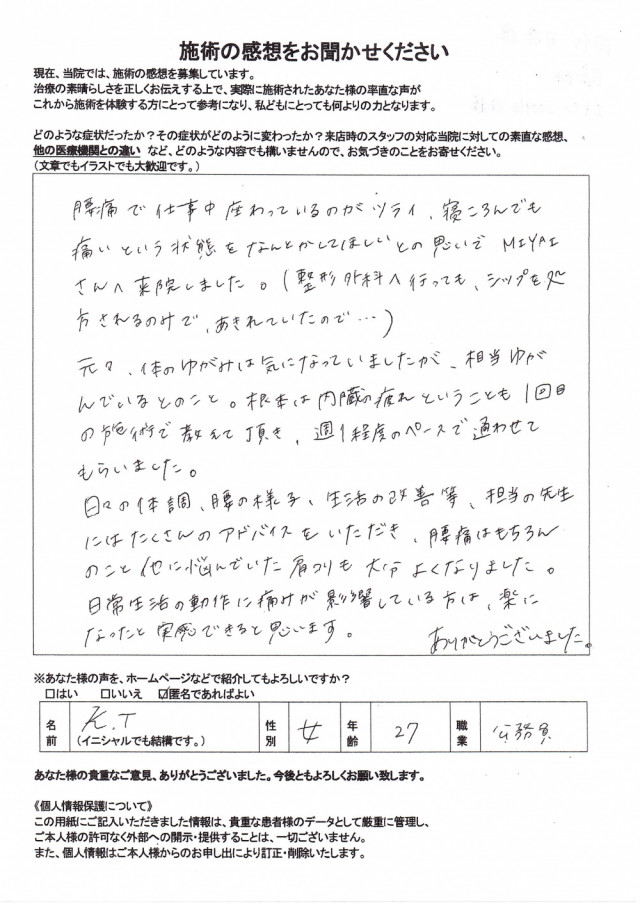 施術の感想をお聞かせください
現在、当院では、施術の感想を募集しています。
治療の素晴らしさを正しくお伝えする上で、実際に施術されたあなた様の率直な声が
これから施術を体験する方にとって参考になり、私どもにとっても何よりの力となります。
どのような症状だったか？その症状がどのように変わったか？来店時のスタッフの対応当院に対しての素直な感想、
他の医療機関との違い など、どのような内容でも構いませんので、お気づきのことをお寄せください。
（文章でもイラストでも大歓迎です。）
腰痛で仕事中座わっているのがツライ、寝ころんでも
痛いという状態をなんとかしてほしいとの思いで MIYAI
さんへ来院しました。(整形外科へ行っても、シップを処
方されるのみで、あきれていたので…)
元々、体のゆがみは気になっていましたが、相当ゆが
んでいるとのこと。根本は内臓の疲れということも1回目
の施術で教えて頂き、週1程度のペースで通わせて
もらいました。
日々の体調、腰の様子、生活の改善等、担当の先生
にはたくさんのアドバイスをいただき、腰痛はもちろん
のこと他に悩んでいた肩コリも大分よくなりました。
日常生活の動作に痛みが影響している方は、楽に
なったと実感できると思います。
ありがとうございました。
※あなた様の声を、ホームページなどで紹介してもよろしいですか？
□はい □いいえ ☑匿名であればよい
名前 K.T （イニシャルでも結構です。） 性別 女 年齢 27 職業 公務員
あなた様の貴重なご意見、ありがとうございました。今後ともよろしくお願い致します。
《個人情報保護について》
この用紙にご記入いただきました情報は、貴重な患者様のデータとして厳重に管理し、
ご本人様の許可なく外部への開示・提供することは、一切ございません。
また、個人情報はご本人様からのお申し出により訂正・削除いたします。